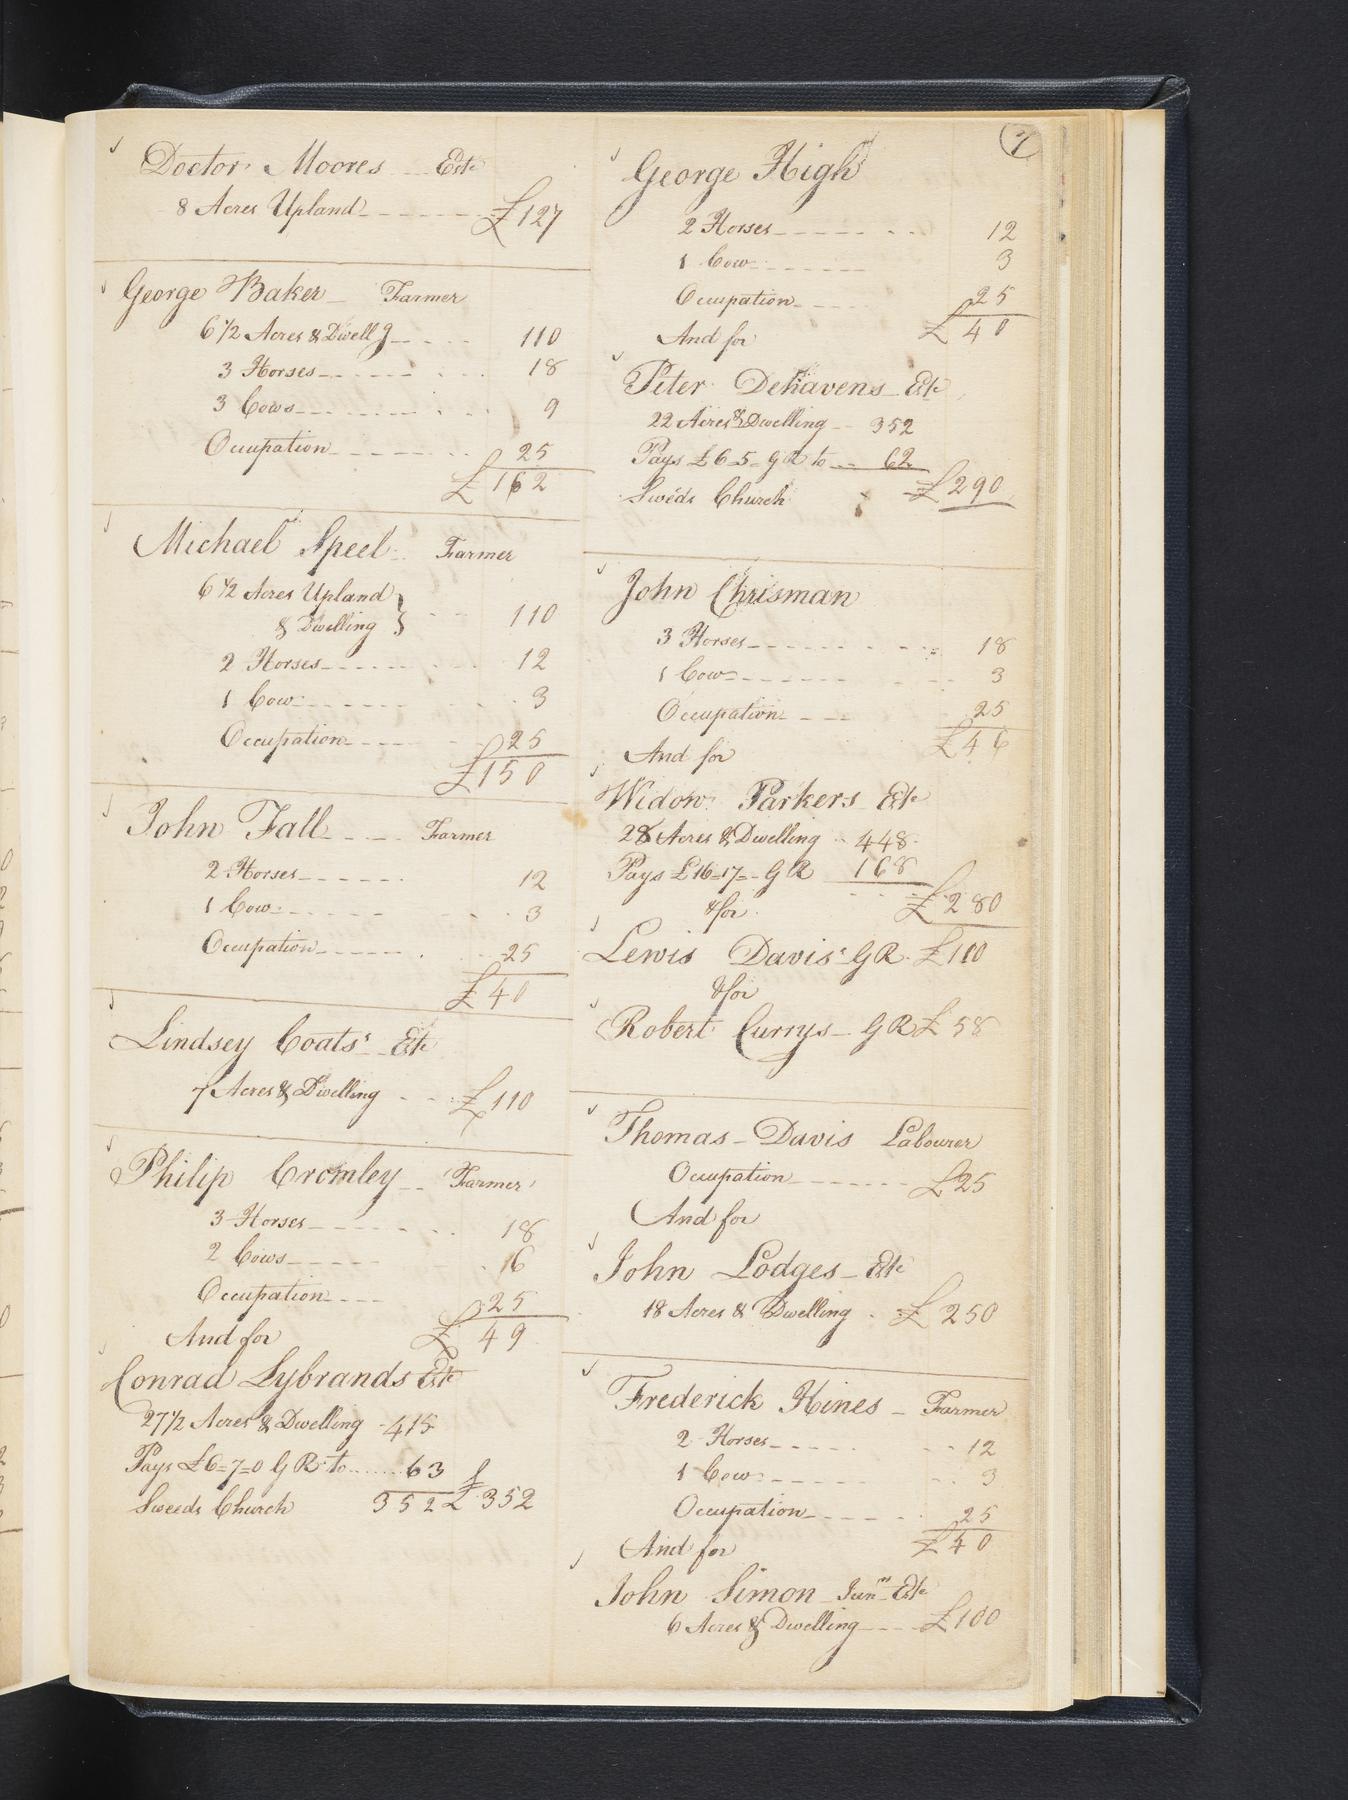 7
Doctor Moores Este
8 Acres Upland £127
George Baker Farmer
6 1/2 Acres & Dwellg 110
3 Horses 18
3 Cows 9
Occupation 25
£162
Michael Speel Farmer
6 1/2 Acres Upland
& Dwelling } 110
2 Horses 12
1 Cow 3
Occupation 25
£150
John Fall Farmer
2 Horses 12
1 Cow 3
Occupation 25
£40
Lindsey Coats's Este
7 Acres & Dwelling £110
Philip Cromley Farmer
3 Horses 18
2 Cows 6
Occupation 25
And for £49
Conrad Lybrands Este
27 1/2 Acres & Dwelling 415
Pays £6=7=0 G R to 63
Sweeds Church 352 £352
George High
2 Horses 12
1 Cow 3
Occupation 25
And for £40
Peter Dehavens Este
22 Acres & Dwelling 352
Pays £6-5- G R to 62
Sweds Church £290
John Chrisman
3 Horses 18
1 Cow 3
Occupation 25
And for £46
Widow Parkers Este
28 Acres & Dwelling 448
Pays £16=17= G R 168
&for £280
Lewis Davis' G R £110
&for
Robert Currys G R £58
Thomas Davis Labourer
Occupation £25
And for
John Lodges Este
18 Acres & Dwelling £250
Frederick Hines Farmer
2 Horses 12
1 Cow 3
Occupation 25
And for £40
John Simon Junr Este
6 Acres & Dwelling £100